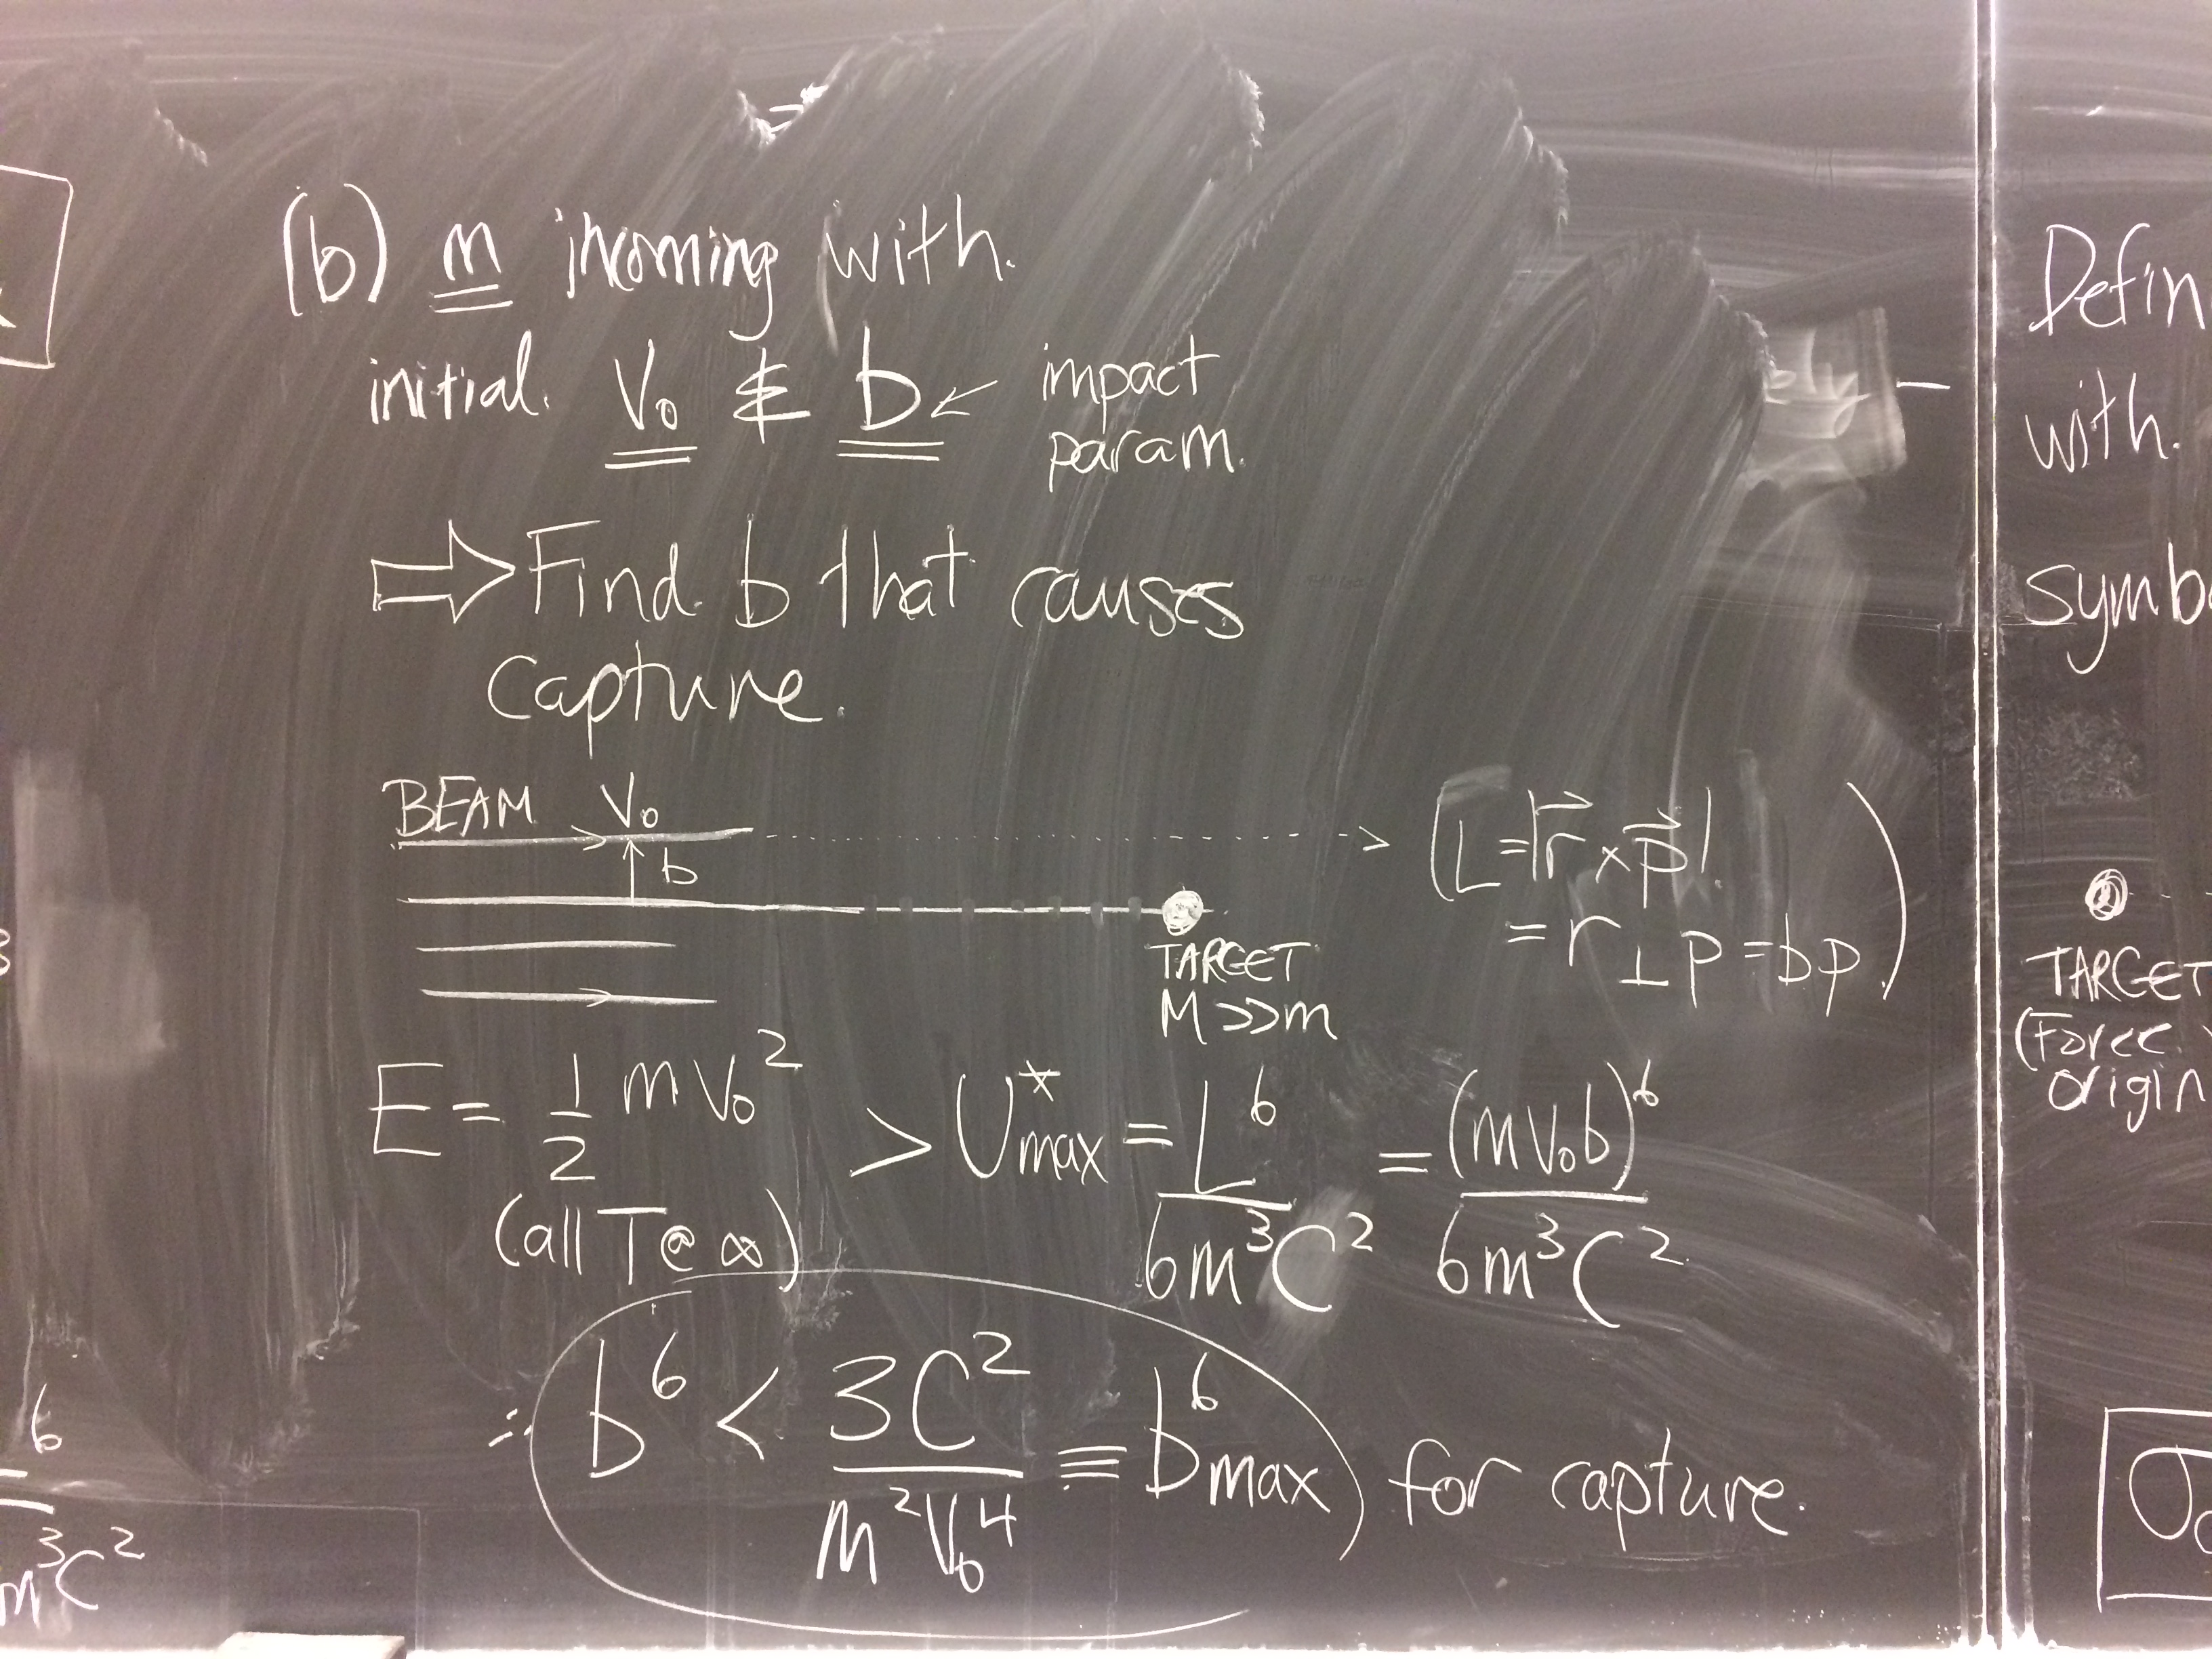 (b) m incoming with.
initial. V₀ & b ← impact
param.
⇒ Find b that causes
capture.
BEAM V₀
b
(L = |r⃗ × p⃗|
= r⊥ p = bp.)
TARGET
M >> m
E = 1/2 m v₀² > U*max = L⁶/6m³C² = (m v₀ b)⁶/6m³C²
(all T @ ∞)
∴ b⁶ < 3C²/m²V₀⁴ ≡ b⁶max for capture.
6
m³C²
Defin
with.
symb
TARGET
(Force
origin